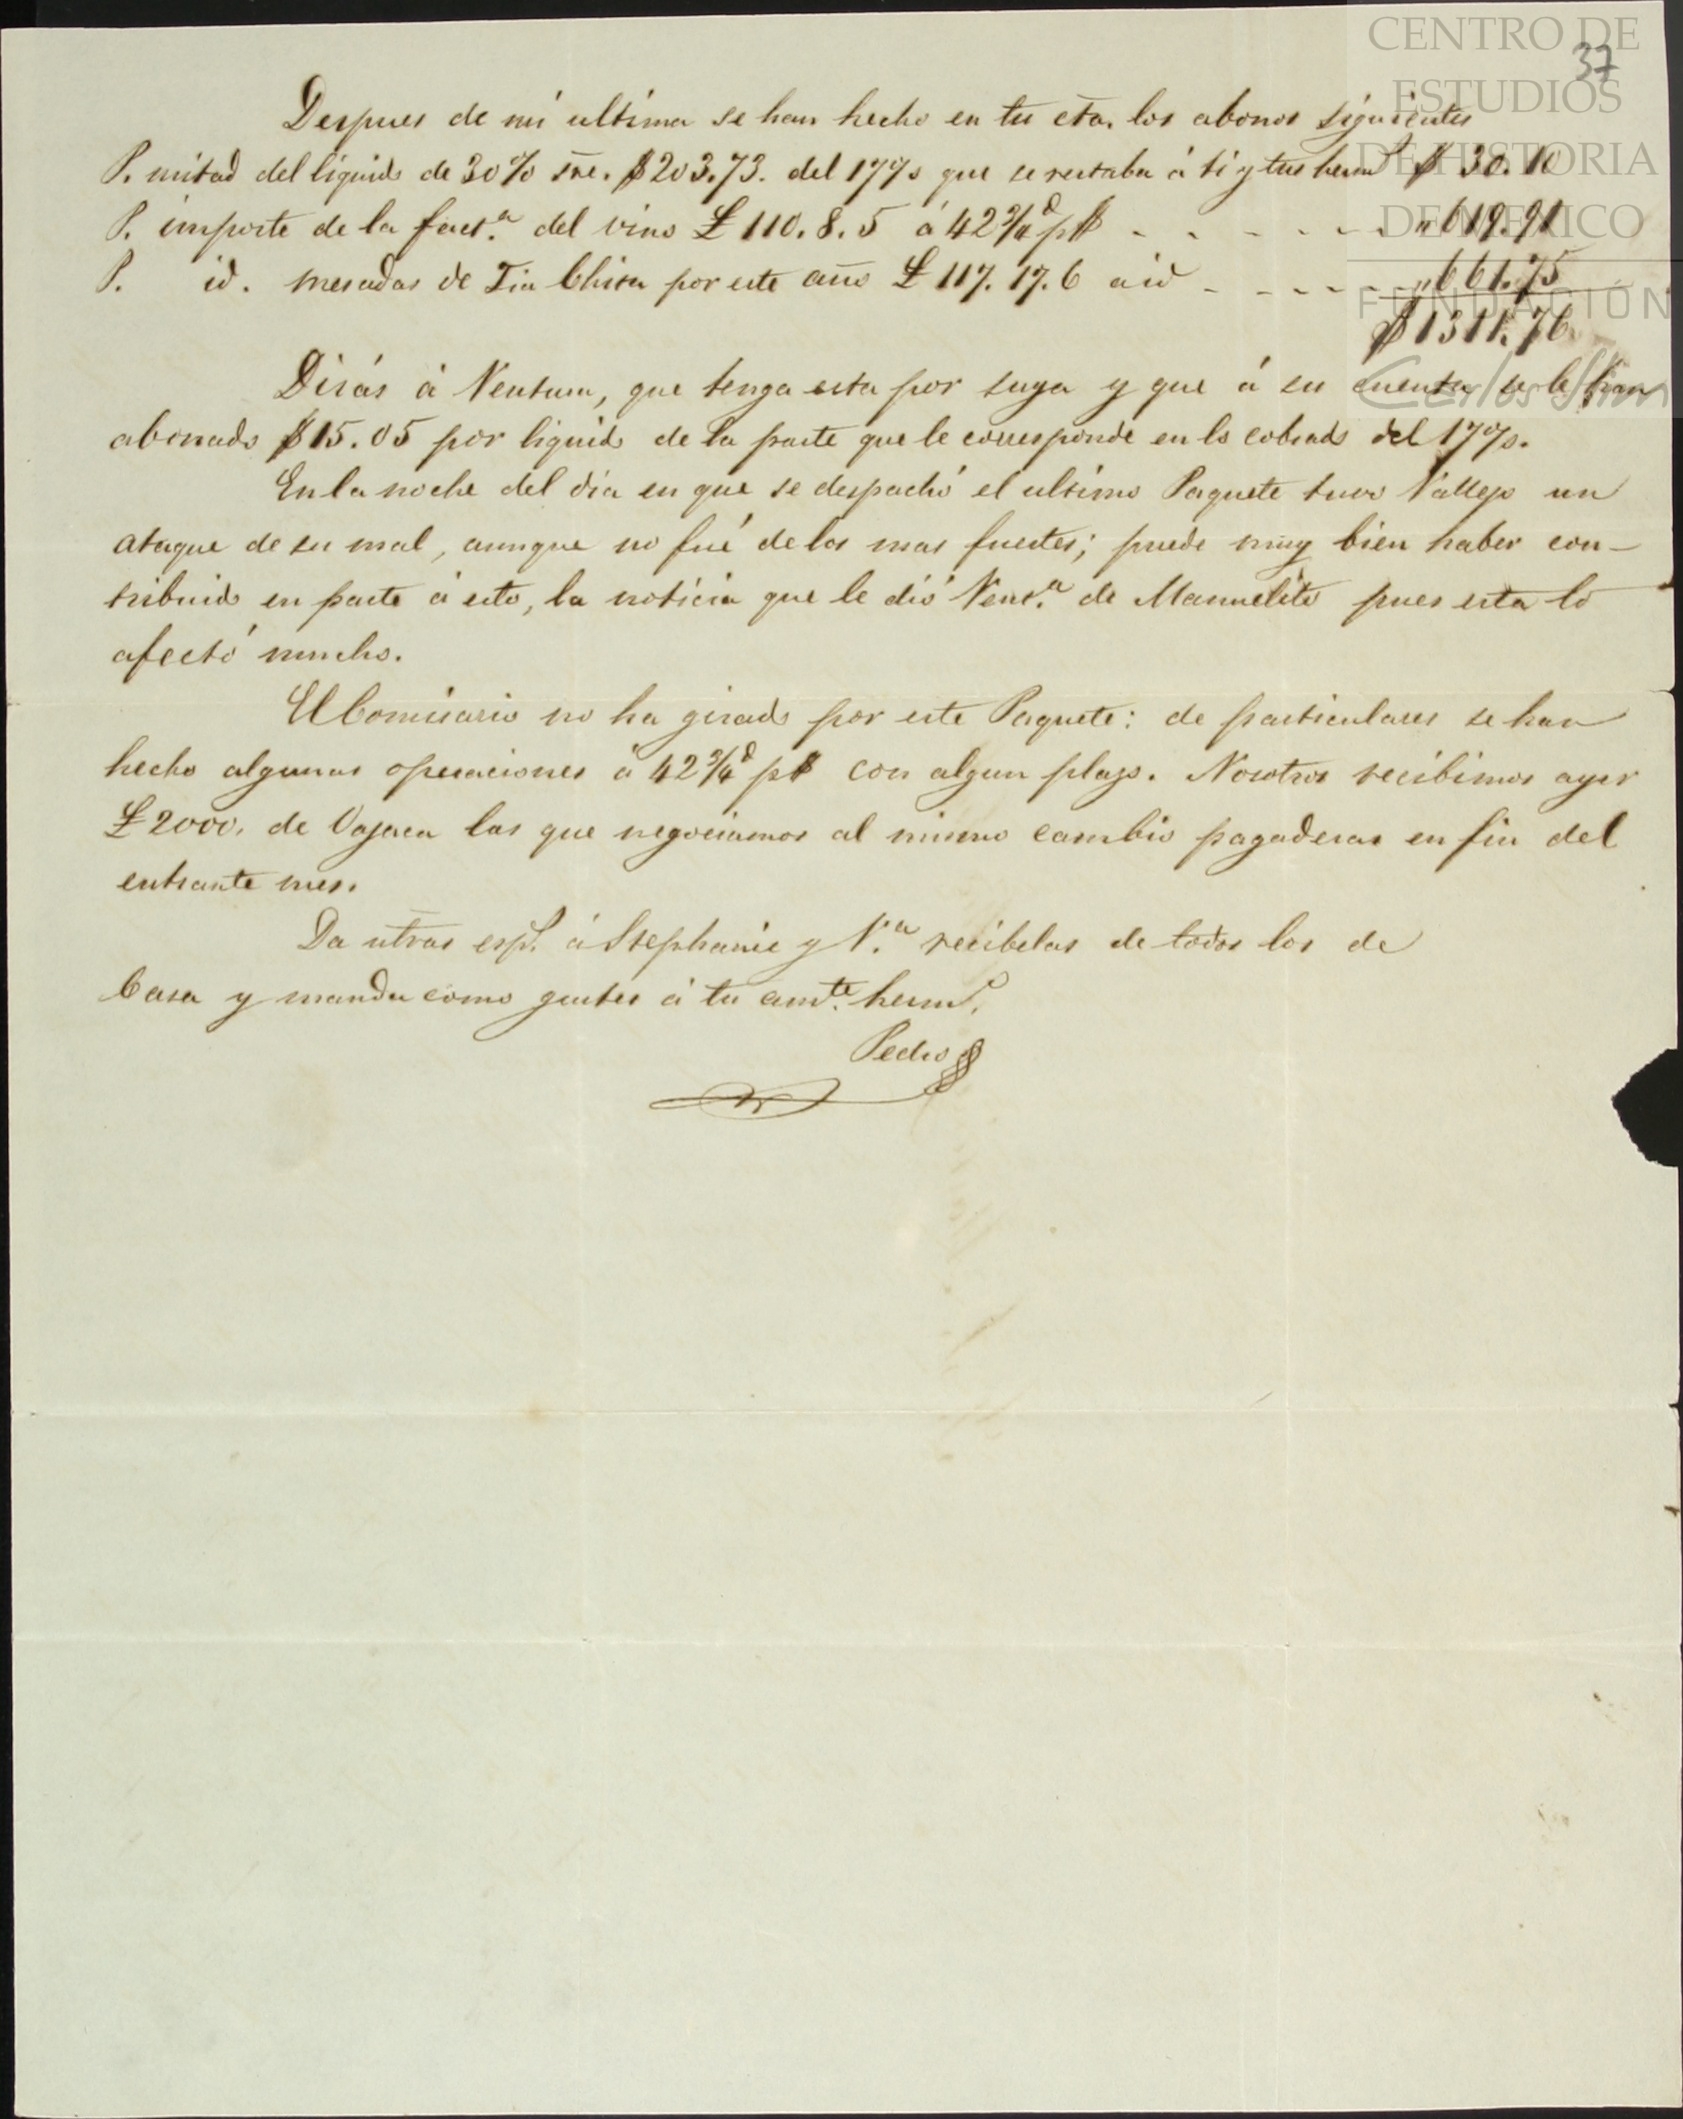 CENTRO DE
ESTUDIOS
DE HISTORIA
DE MÉXICO
FUNDACIÓN
Carlos Slim
37
Despues de mi ultima se han hecho en tu cta. los abonos siguientes
P. mitad del liquido de 30% sre. $203.73. del 17% que se restaba á ti y tus herms $ 30.10
P. importe de la fact.a del vino £ 110.8.5 á 42 3/4 d p$ - - - - - - " 619.91
P. id. mesadas de Tia Chica por este año £ 117.17.6 a id - - - - - " 661.75
$ 1311.76
Dirás á Ventura, que tenga esta por suya y que á su cuenta se le han
abonado $15.05 por liquido de la parte que le corresponde en lo cobrado del 17%.
En la noche del dia en que se despachó el ultimo Paquete tuvo Vallejo un
ataque de su mal, aunque no fué de los mas fuertes; puede muy bien haber con-
tribuido en parte á esto, la noticia que le dió Vent.a de Manuelito pues esta lo
afectó mucho.
El Comisario no ha girado por este Paquete: de particulares se han
hecho algunas operaciones á 42 3/4 d p$ con algun plazo. Nosotros recibimos ayer
£ 2000. de Oajaca las que negociamos al mismo cambio pagaderas en fin del
entrante mes.
Da ntras esps. á Stephanie y V.a recibelas de todos los de
Casa y manda como gustes á tu amte. hermo.
Pedro